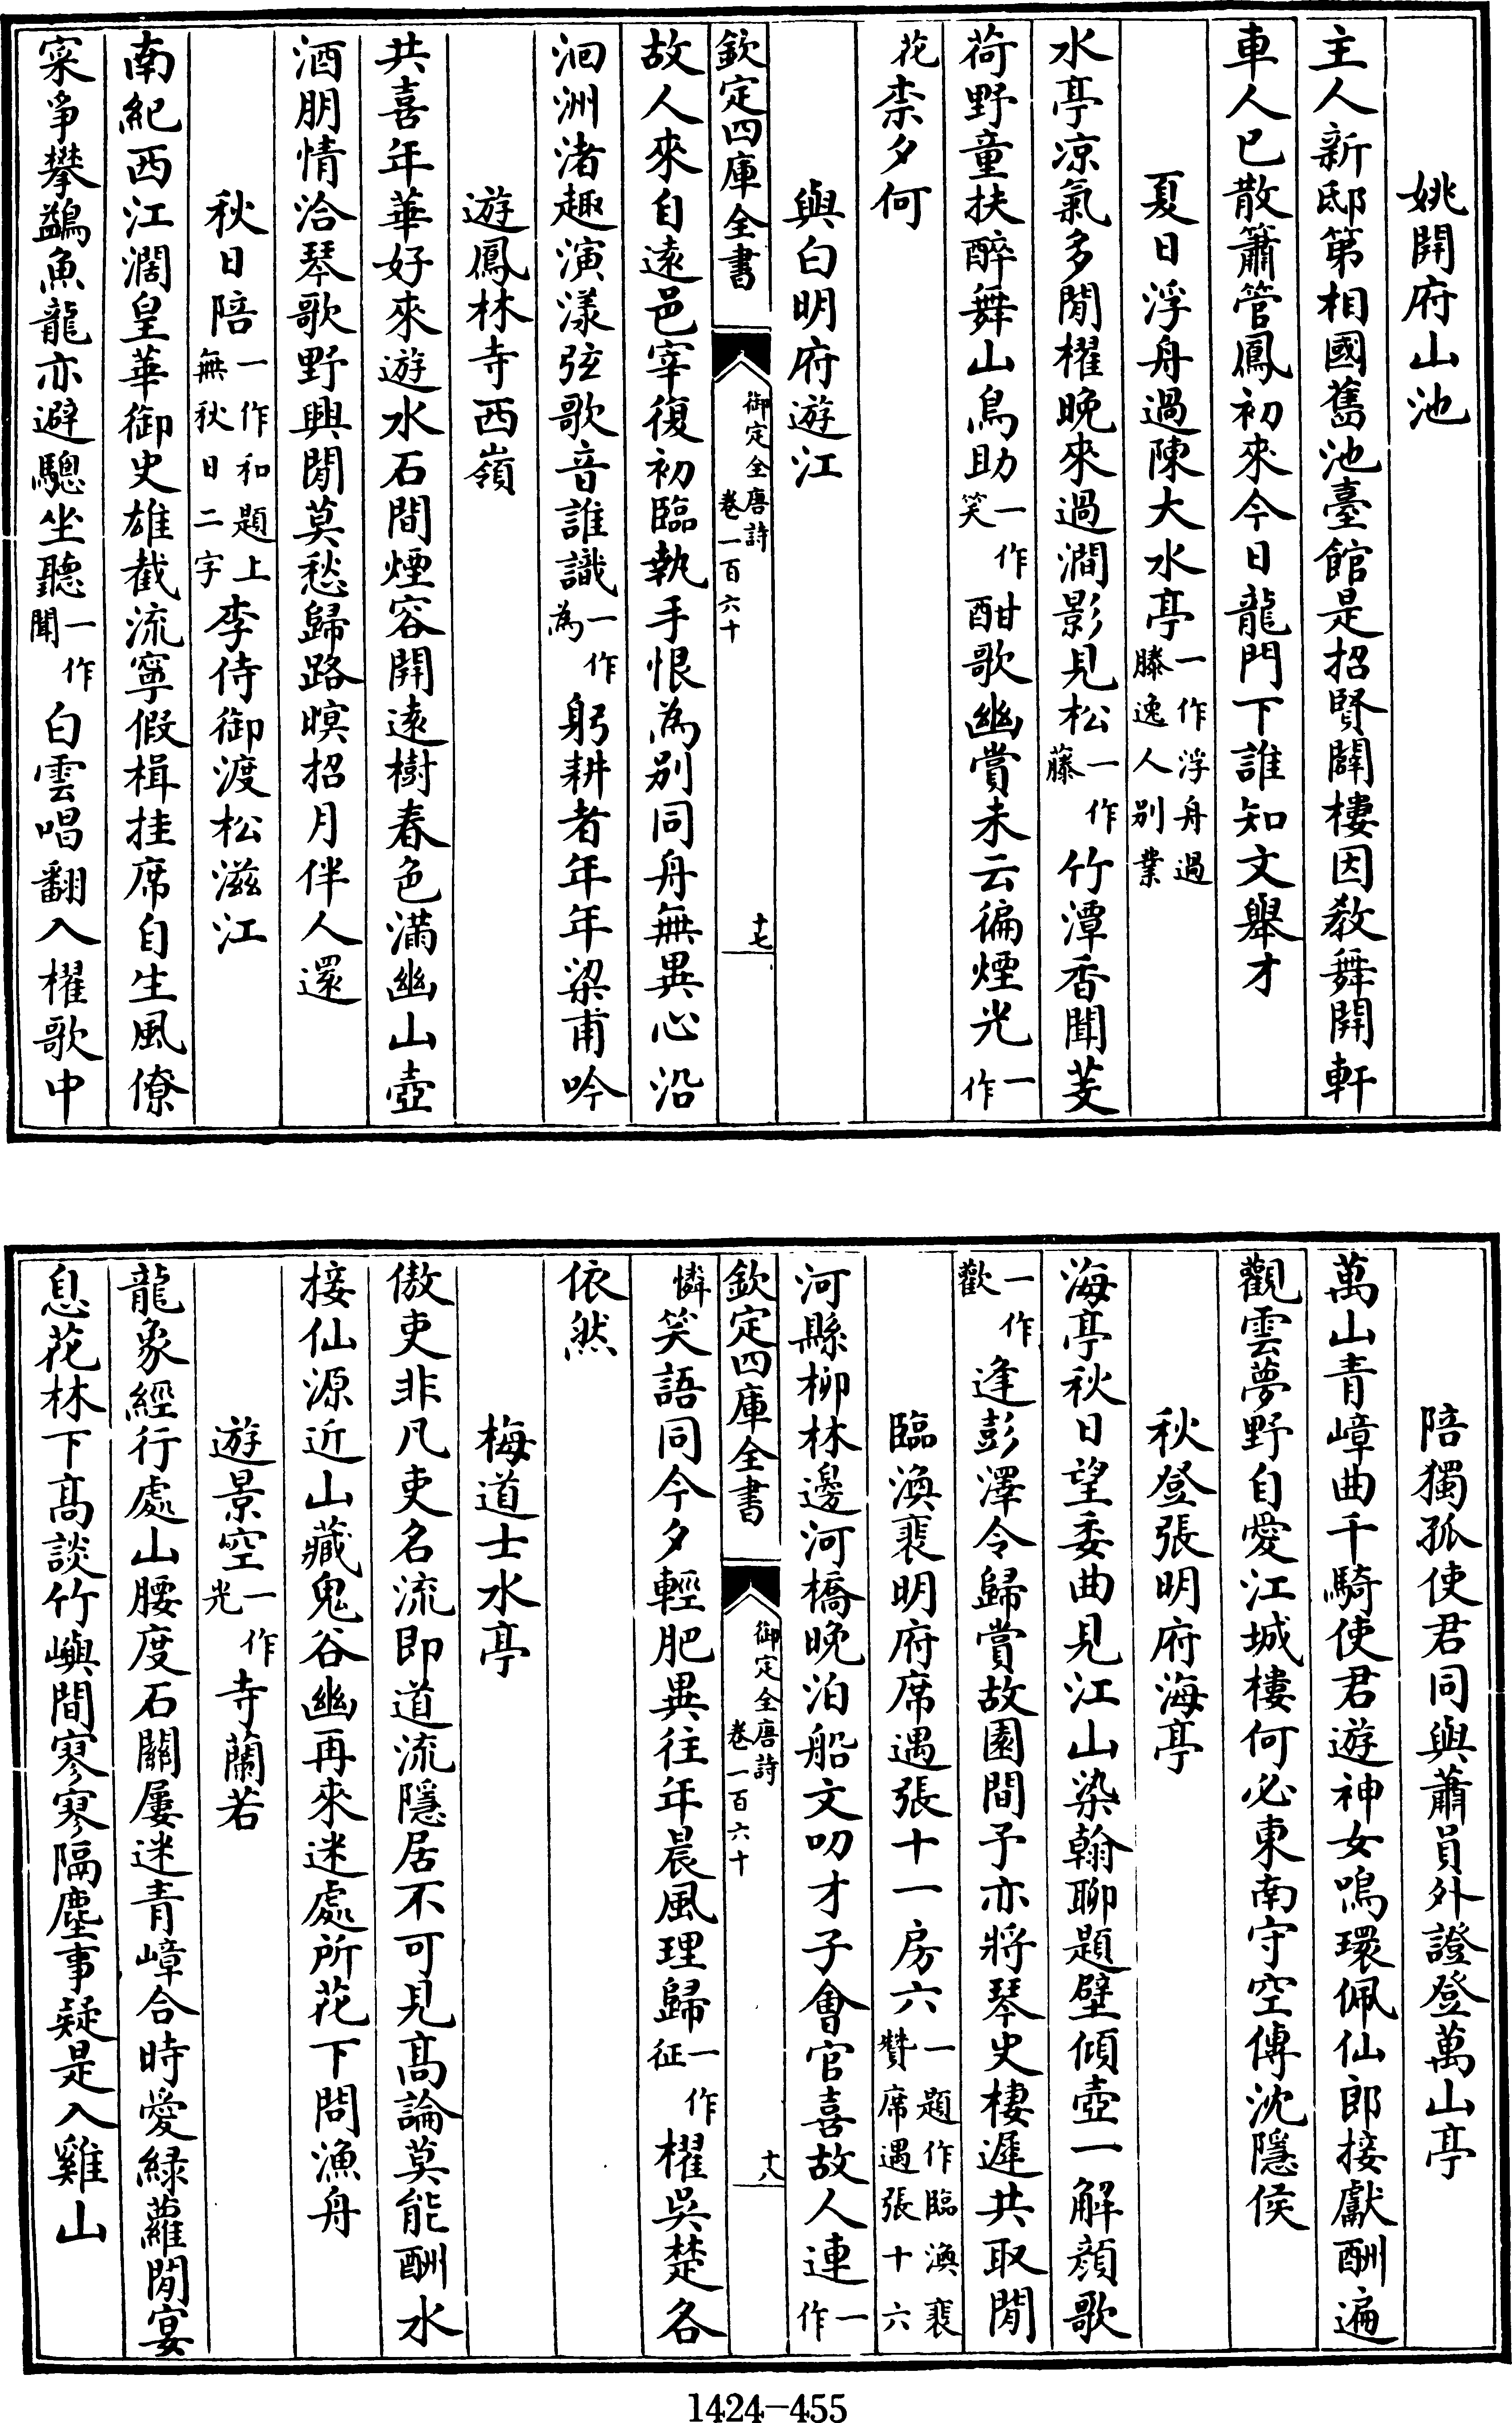 姚開府山池
主人新邸第相國舊池臺館是招賢闢樓因教舞開軒
車人已散簫管鳳初來今日龍門下誰知文舉才
夏日浮舟過陳大水亭一作浮舟過滕逸人別業
水亭凉氣多閒櫂晚來過澗影見松一作藤竹潭香聞芰
荷野童扶醉舞山鳥助一作笑酣歌幽賞未云徧煙光一作
花柰夕何
與白明府遊江
欽定四庫全書 御定全唐詩卷一百六十 十七
故人來自遠邑宰復初臨執手恨為别同舟無異心沿
洄洲渚趣演漾弦歌音誰識一作為躬耕者年年梁甫吟
遊鳳林寺西嶺
共喜年華好來遊水石間煙容開遠樹春色滿幽山壺
酒朋情洽琴歌野興閒莫愁歸路暝招月伴人還
秋日陪一作和題上無秋日二字李侍御渡松滋江
南紀西江濶皇華御史雄截流寧假楫挂席自生風僚
寀爭攀鷁魚龍亦避驄坐聽一作聞白雲唱翻入櫂歌中
陪獨孤使君同與蕭員外證登萬山亭
萬山青嶂曲千騎使君遊神女鳴環佩仙郎接獻酬遍
觀雲夢野自愛江城樓何必東南守空傳沈隱侯
秋登張明府海亭
海亭秋日望委曲見江山染翰聊題壁傾壺一解顔歌
一作歡逢彭澤令歸賞故園間予亦將琴史棲遲共取閒
臨渙裴明府席遇張十一房六一題作臨渙裴贊席遇張十六
河縣柳林邊河橋晚泊船文叨才子會官喜故人連一作
欽定四庫全書 御定全唐詩卷一百六十 十八
憐笑語同今夕輕肥異往年晨風理歸一作征櫂吳楚各
依然
梅道士水亭
傲吏非凡吏名流即道流隱居不可見髙論莫能酬水
接仙源近山藏鬼谷幽再來迷處所花下問漁舟
遊景空一作光寺蘭若
龍象經行處山腰度石關屢迷青嶂合時愛緑蘿閒宴
息花林下髙談竹嶼間寥寥隔塵事疑是入雞山
1424-455